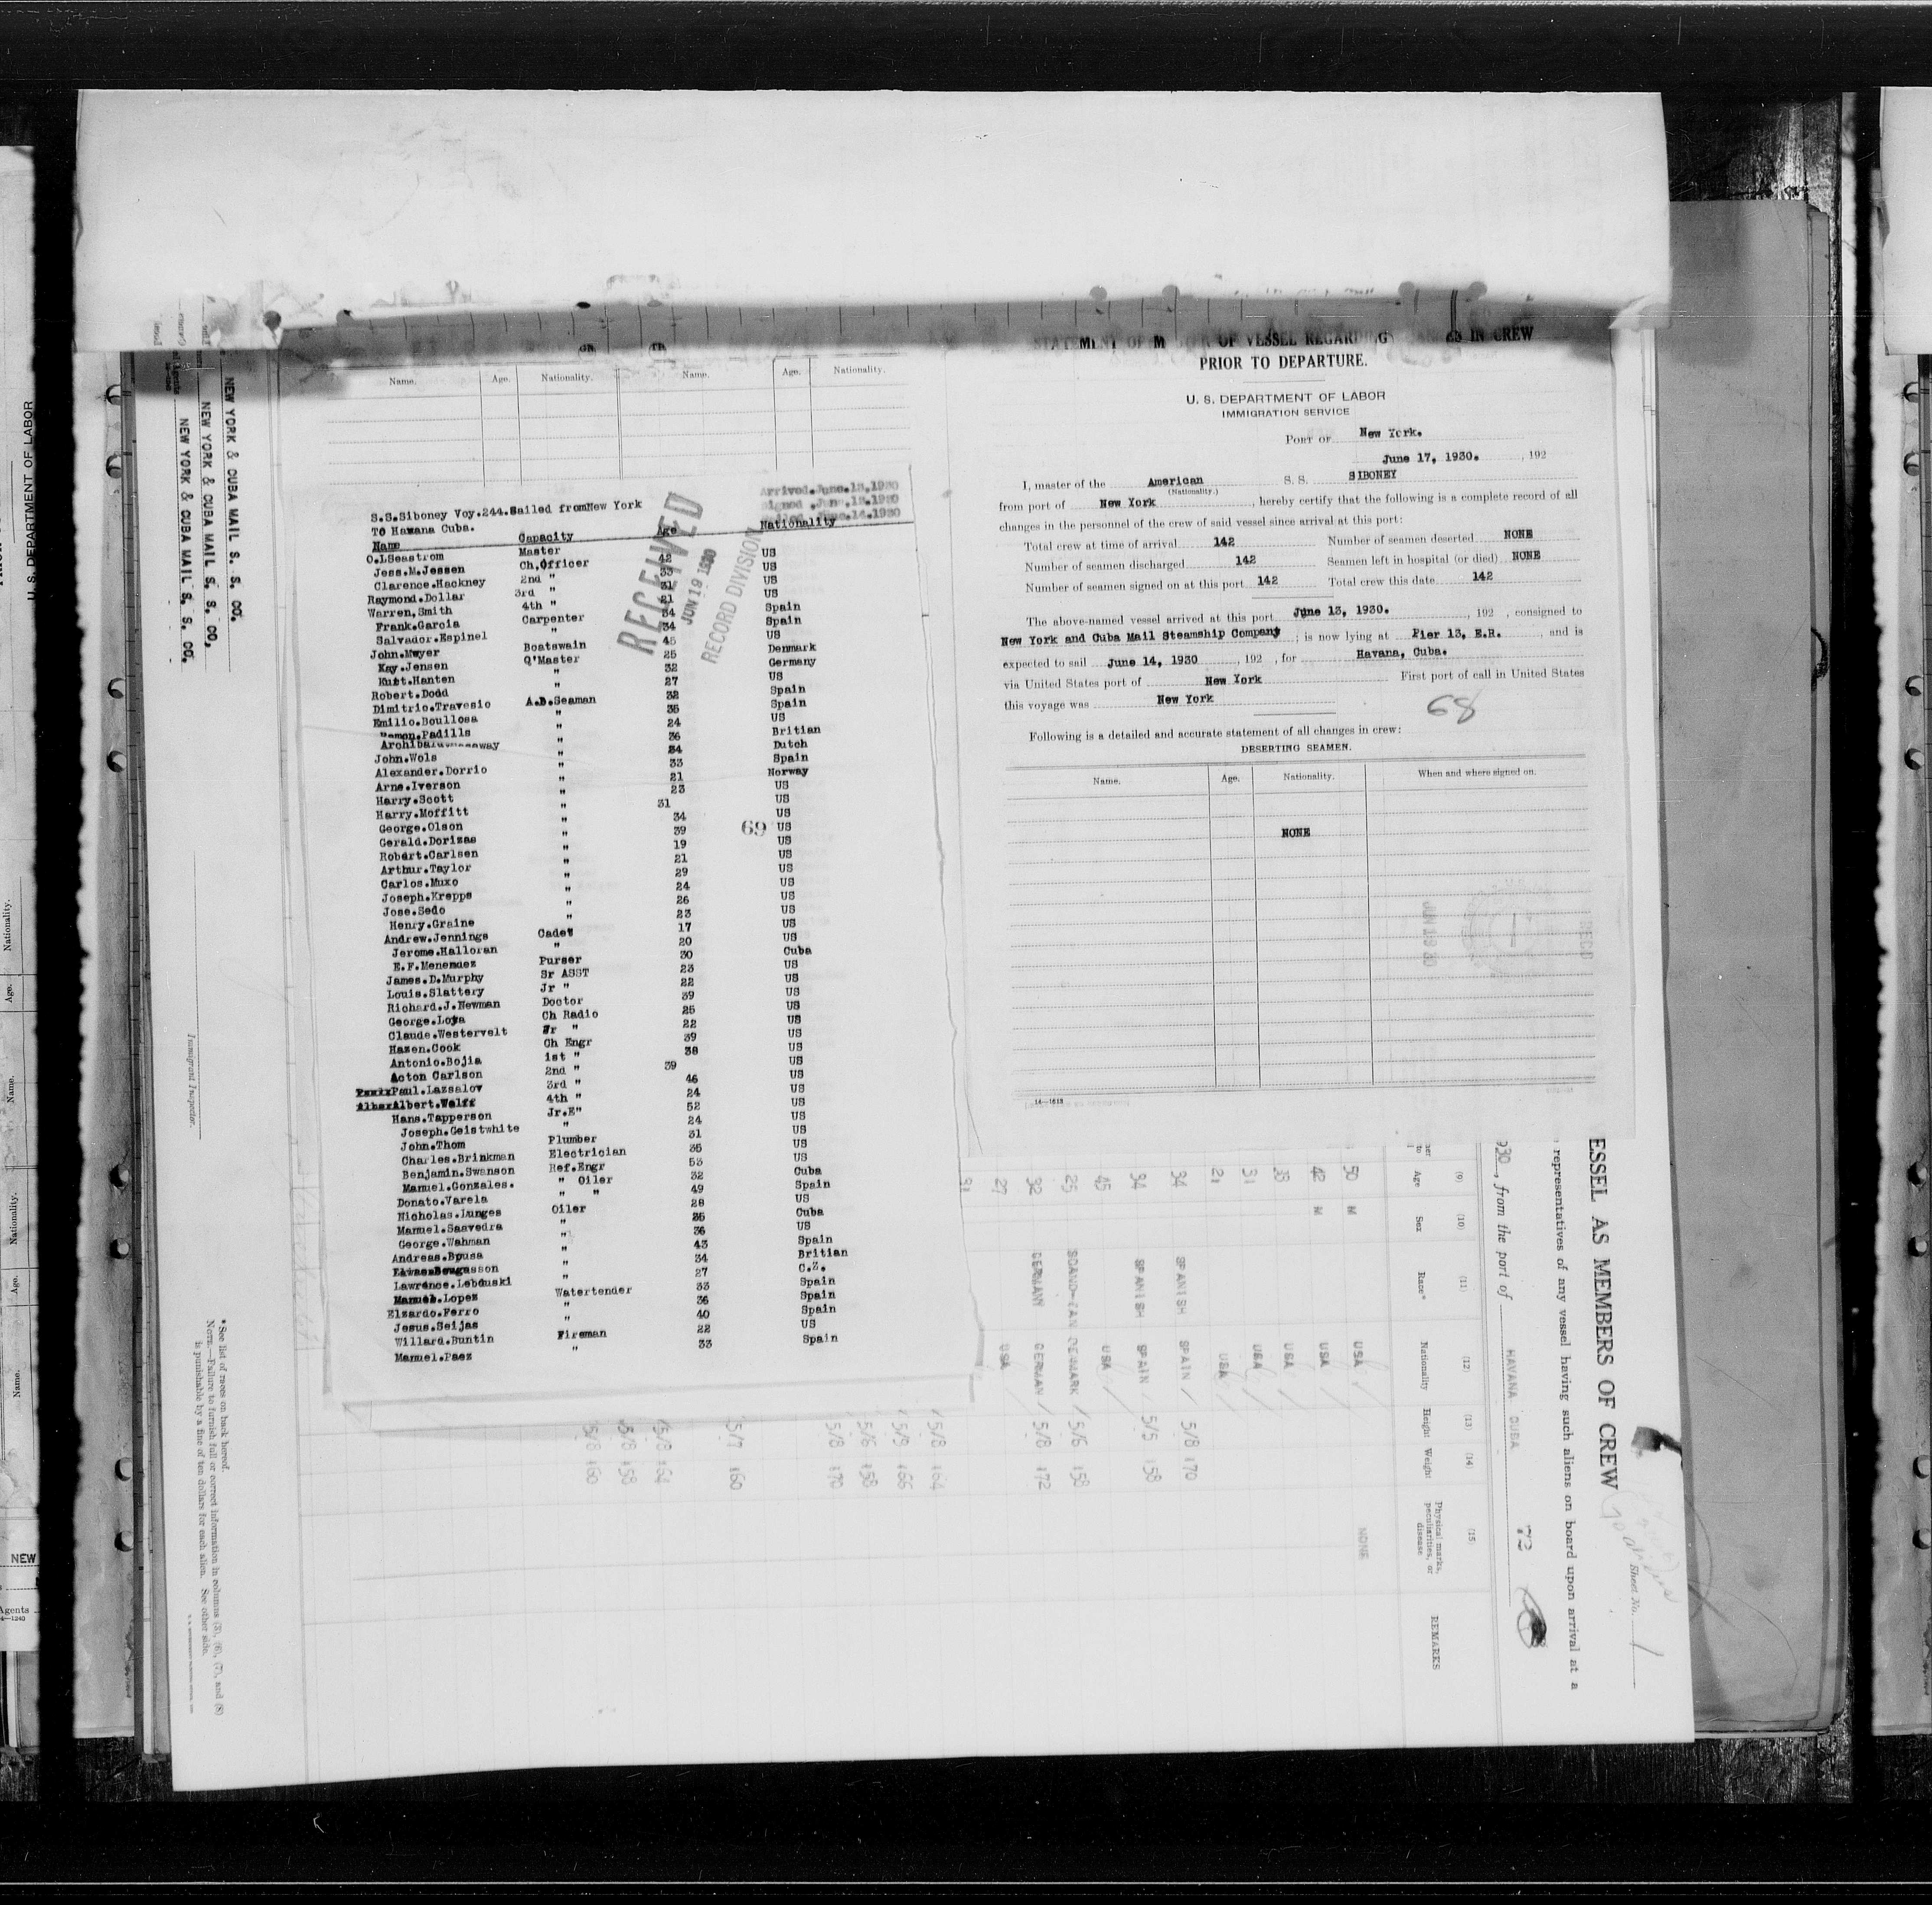 Name. Age. Nationality. Name. Age. Nationality.
Arrived.June.13,1930
Signed ,Jun,13,1930
Sailed ,June.14.1930
S.S.Siboney Voy.244.Sailed fromNew York
TO Havana Cuba.
Name Capacity Age Nationality
O.LSeastrom Master 42 US
Jess.M.Jessen Ch,Officer 33 US
Clarence.Hackney 2nd " 31 US
Raymond.Dollar 3rd " 21 US
Warren.Smith 4th " 34 Spain
Frank.Garcia Carpenter 34 Spain
Salvador.Espinel " 45 US
John.Meyer Boatswain 25 Denmark
Kay.Jensen Q'Master 32 Germany
Kurt.Hanten " 27 US
Robert.Dodd " 32 Spain
Dimitrio.Travesio A.B.Seaman 35 Spain
Emilio.Boullosa " 24 US
Ramon.Padills " 36 Britian
Archibald " 34 Dutch
John.Wols " 33 Spain
Alexander.Dorrio " 21 Norway
Arne.Iverson " 23 US
Harry.Scott " 31 US
Harry.Moffitt " 34 US
George.Olson " 39 US
Gerald.Dorizas " 19 US
Robert.Carlsen " 21 US
Arthur.Taylor " 29 US
Carlos.Muxo " 24 US
Joseph.Krepps " 26 US
Jose.Sedo " 23 US
Henry.Graine " 17 US
Andrew.Jennings Cadet 20 US
Jerome.Halloran " 30 Cuba
E.F.Menendez Purser 23 US
James.D.Murphy Sr ASST 22 US
Louis.Slattery Jr " 39 US
Richard.J.Newman Doctor 25 US
George.Loya Ch Radio 22 US
Claude.Westervelt Jr " 39 US
Hazen.Cook Ch Engr 38 US
Antonio.Bojia 1st " 39 US
Acton Carlson 2nd " 46 US
Paul.Lazsalov 3rd " 24 US
Albert.Wolff 4th " 52 US
Hans.Tapperson Jr.E" 24 US
Joseph.Geistwhite " 31 US
John.Thom Plumber 35 US
Charles.Brinkman Electrician 53 US
Benjamin.Swanson Ref.Engr 32 Cuba
Manuel.Gonzales. " Oiler 49 Spain
Donato.Varela " " 28 US
Nicholas.Lunges Oiler 35 Cuba
Manuel.Saavedra " 36 US
George.Wahman " 43 Spain
Andreas.Bousa " 34 Britian
" 27 C.Z.
Lawrence.Lebduski " 33 Spain
Manuel.Lopez Watertender 36 Spain
Elzardo.Ferro " 40 Spain
Jesus.Seijas " 22 US
Willard.Buntin Fireman 33 Spain
Manuel.Paez "
RECEIVED
JUN 19 1930
RECORD DIVISION
69
STATEMENT OF OF VESSEL REGARDING IN CREW
PRIOR TO DEPARTURE.
U. S. DEPARTMENT OF LABOR
IMMIGRATION SERVICE
PORT OF New York.
June 17, 1930. , 192
I, master of the American S. S. SIBONEY
(Nationality.)
from port of New York , hereby certify that the following is a complete record of all
changes in the personnel of the crew of said vessel since arrival at this port:
Total crew at time of arrival 142 Number of seamen deserted NONE
Number of seamen discharged 142 Seamen left in hospital (or died) NONE
Number of seamen signed on at this port 142 Total crew this date 142
The above-named vessel arrived at this port June 13, 1930. , 192 , consigned to
New York and Cuba Mail Steamship Company ; is now lying at Pier 13, E.R. and is
expected to sail June 14, 1930 , 192 , for Havana, Cuba.
via United States port of New York First port of call in United States
this voyage was New York
68
Following is a detailed and accurate statement of all changes in crew:
DESERTING SEAMEN.
Name. Age. Nationality. When and where signed on.
NONE
14—1613
ESSEL AS MEMBERS OF CREW
Sheet No. 1
representatives of any vessel having such aliens on board upon arrival at a
930, from the port of HAVANA CUBA 73
(9) (10) (11) (12) (13) (14) (15)
Age Sex Race* Nationality Height Weight Physical marks, peculiarities, or disease REMARKS
50 M USA NONE
42 M USA
33 USA
31 USA
21 USA
34 SPANISH SPAIN 5/8 170
34 SPANISH SPAIN 5/5 158
45 USA
25 SCAND-IAN DENMARK 5/6 158
32 GERMANN GERMAN 5/8 172
27 USA
31
5/8 164
5/9 166
5/6 158
5/8 170
5/7 160
5/8 164
5/8 158
5/8 160
NEW YORK & CUBA MAIL S. S. CO.
NEW YORK & CUBA MAIL S. S. CO,
NEW YORK & CUBA MAIL S. S. CO.
Immigrant Inspector.
*See list of races on back hereof.
NOTE.—Failure to furnish full or correct information in columns (3), (6), (7), and (8)
is punishable by a fine of ten dollars for each alien. See other side.
U. S. DEPARTMENT OF LABOR
Nationality.
Age.
Name.
Nationality.
Age.
Name.
NEW
Agents